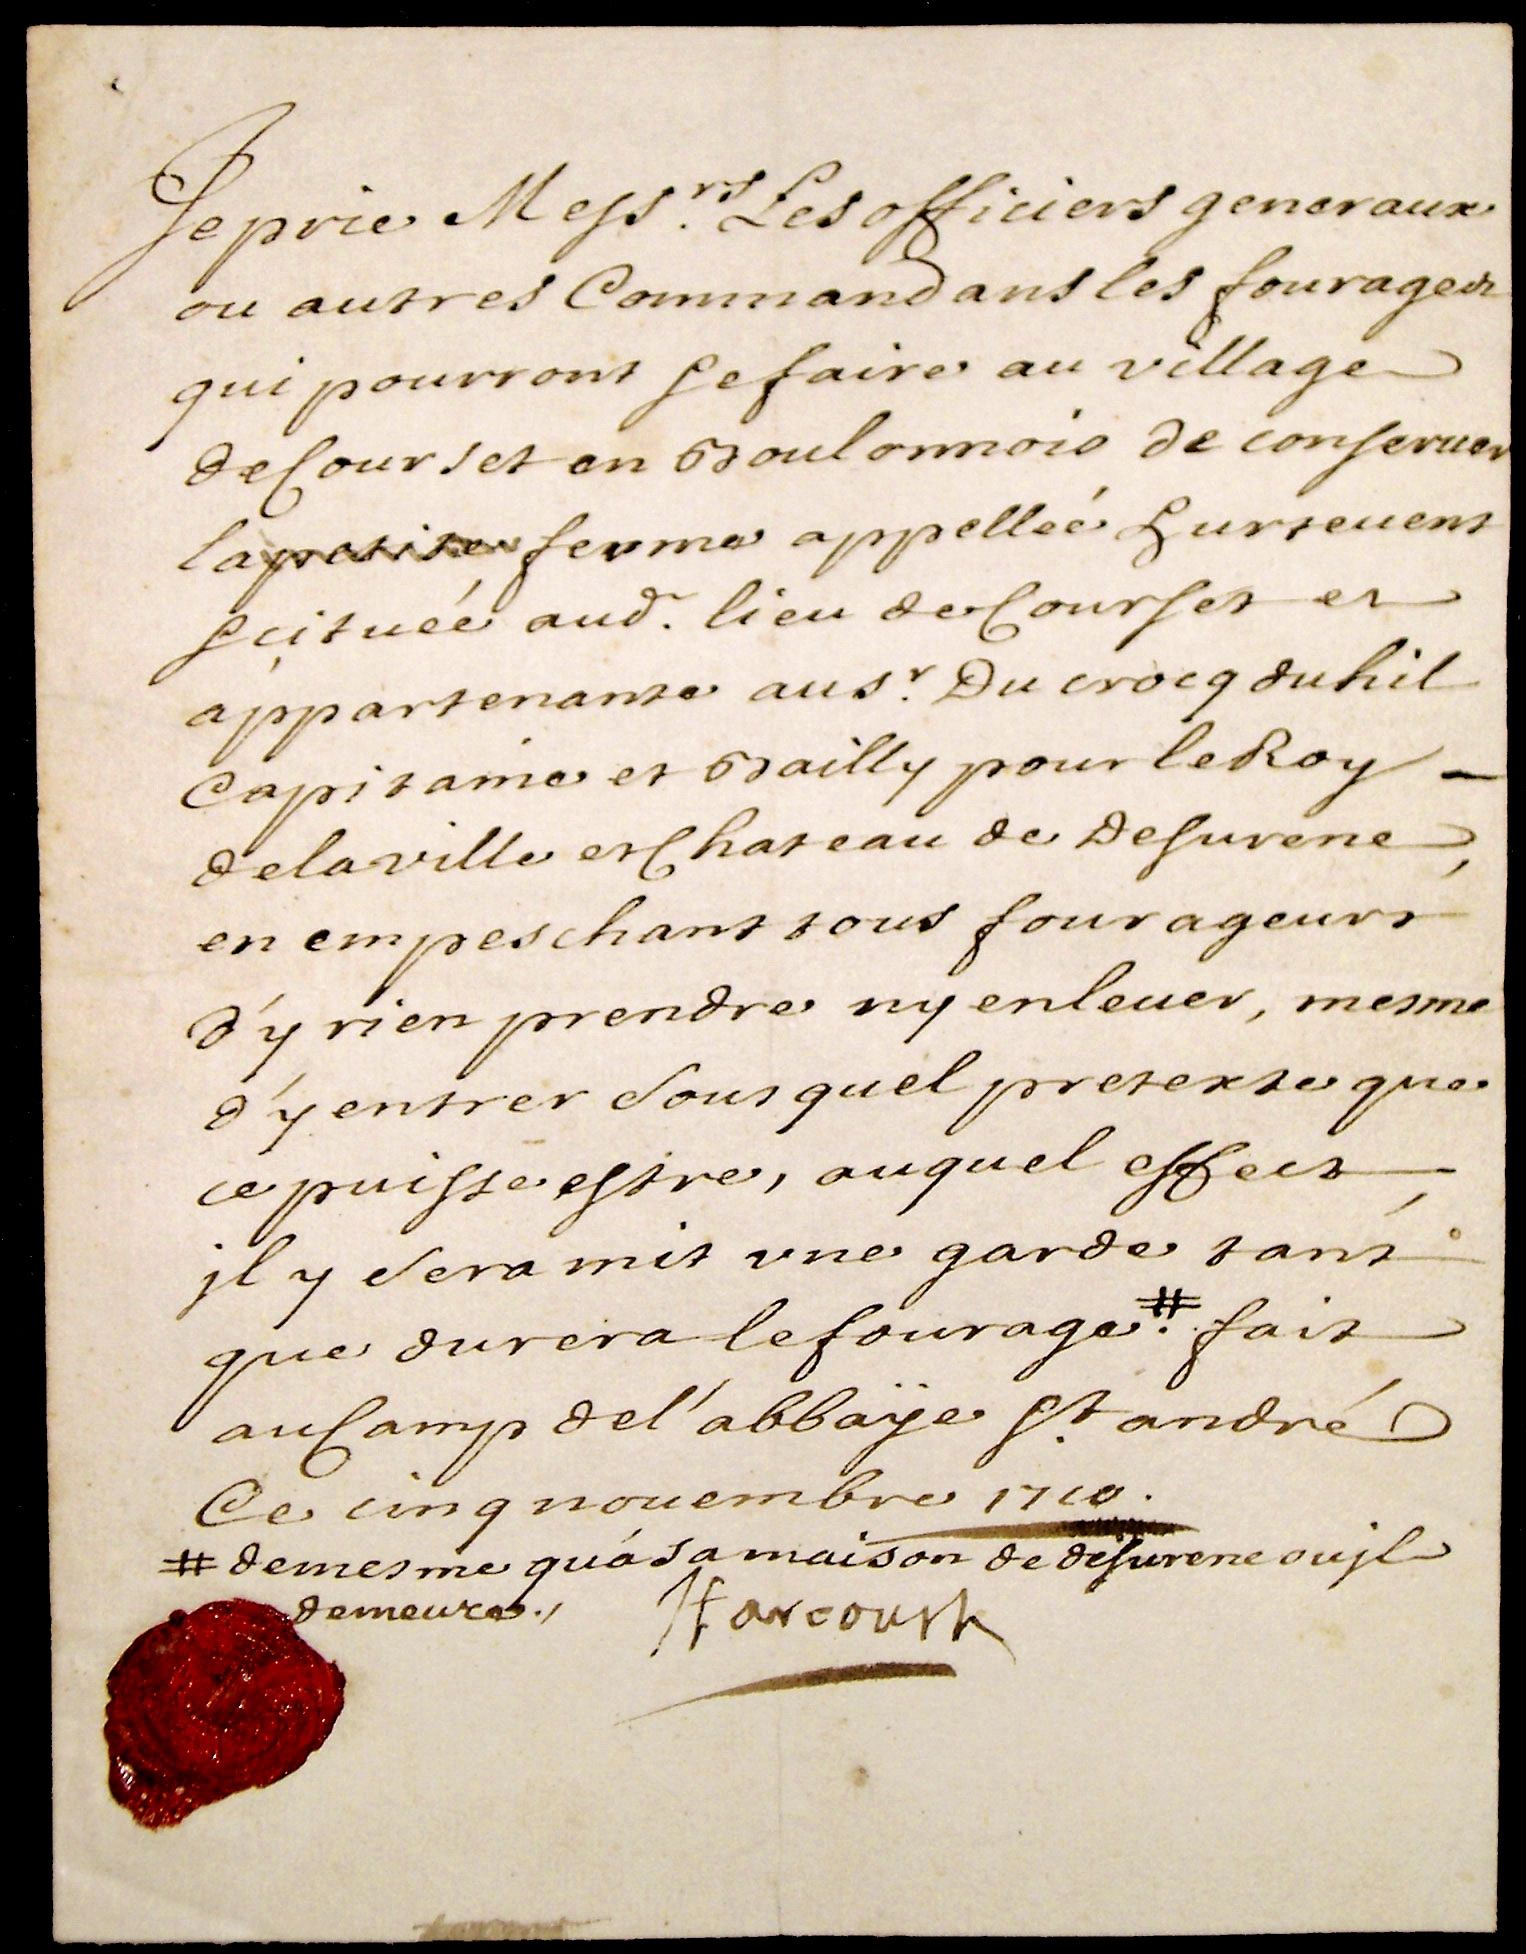 Je prie Mess.rs Les officiers generaux
ou autres Commandans les fourages
qui pourront se faire au village
de Courset en Boulonnois de conseruer
la petite ferme appelleé Surteuent
scitueé aud. lieu de Courset et
appartenante au sr. Du crocq du hil
Capitaine et Bailly pour le Roy
de la ville et Chateau de Desurene,
en empeschant tous fourageurs
d'y rien prendre ny enleuer, mesme
d'y entrer sous quel pretexte que
ce puisse estre, auquel effect,
jl y sera mis vne garde tant
que durera le fourage #. fait
au Camp de l'abbaÿe St. andré
Ce cinq nouembre 1710.
# de mesme qu'á sa maison de desurene ou jl
demeure.,
Harcourt